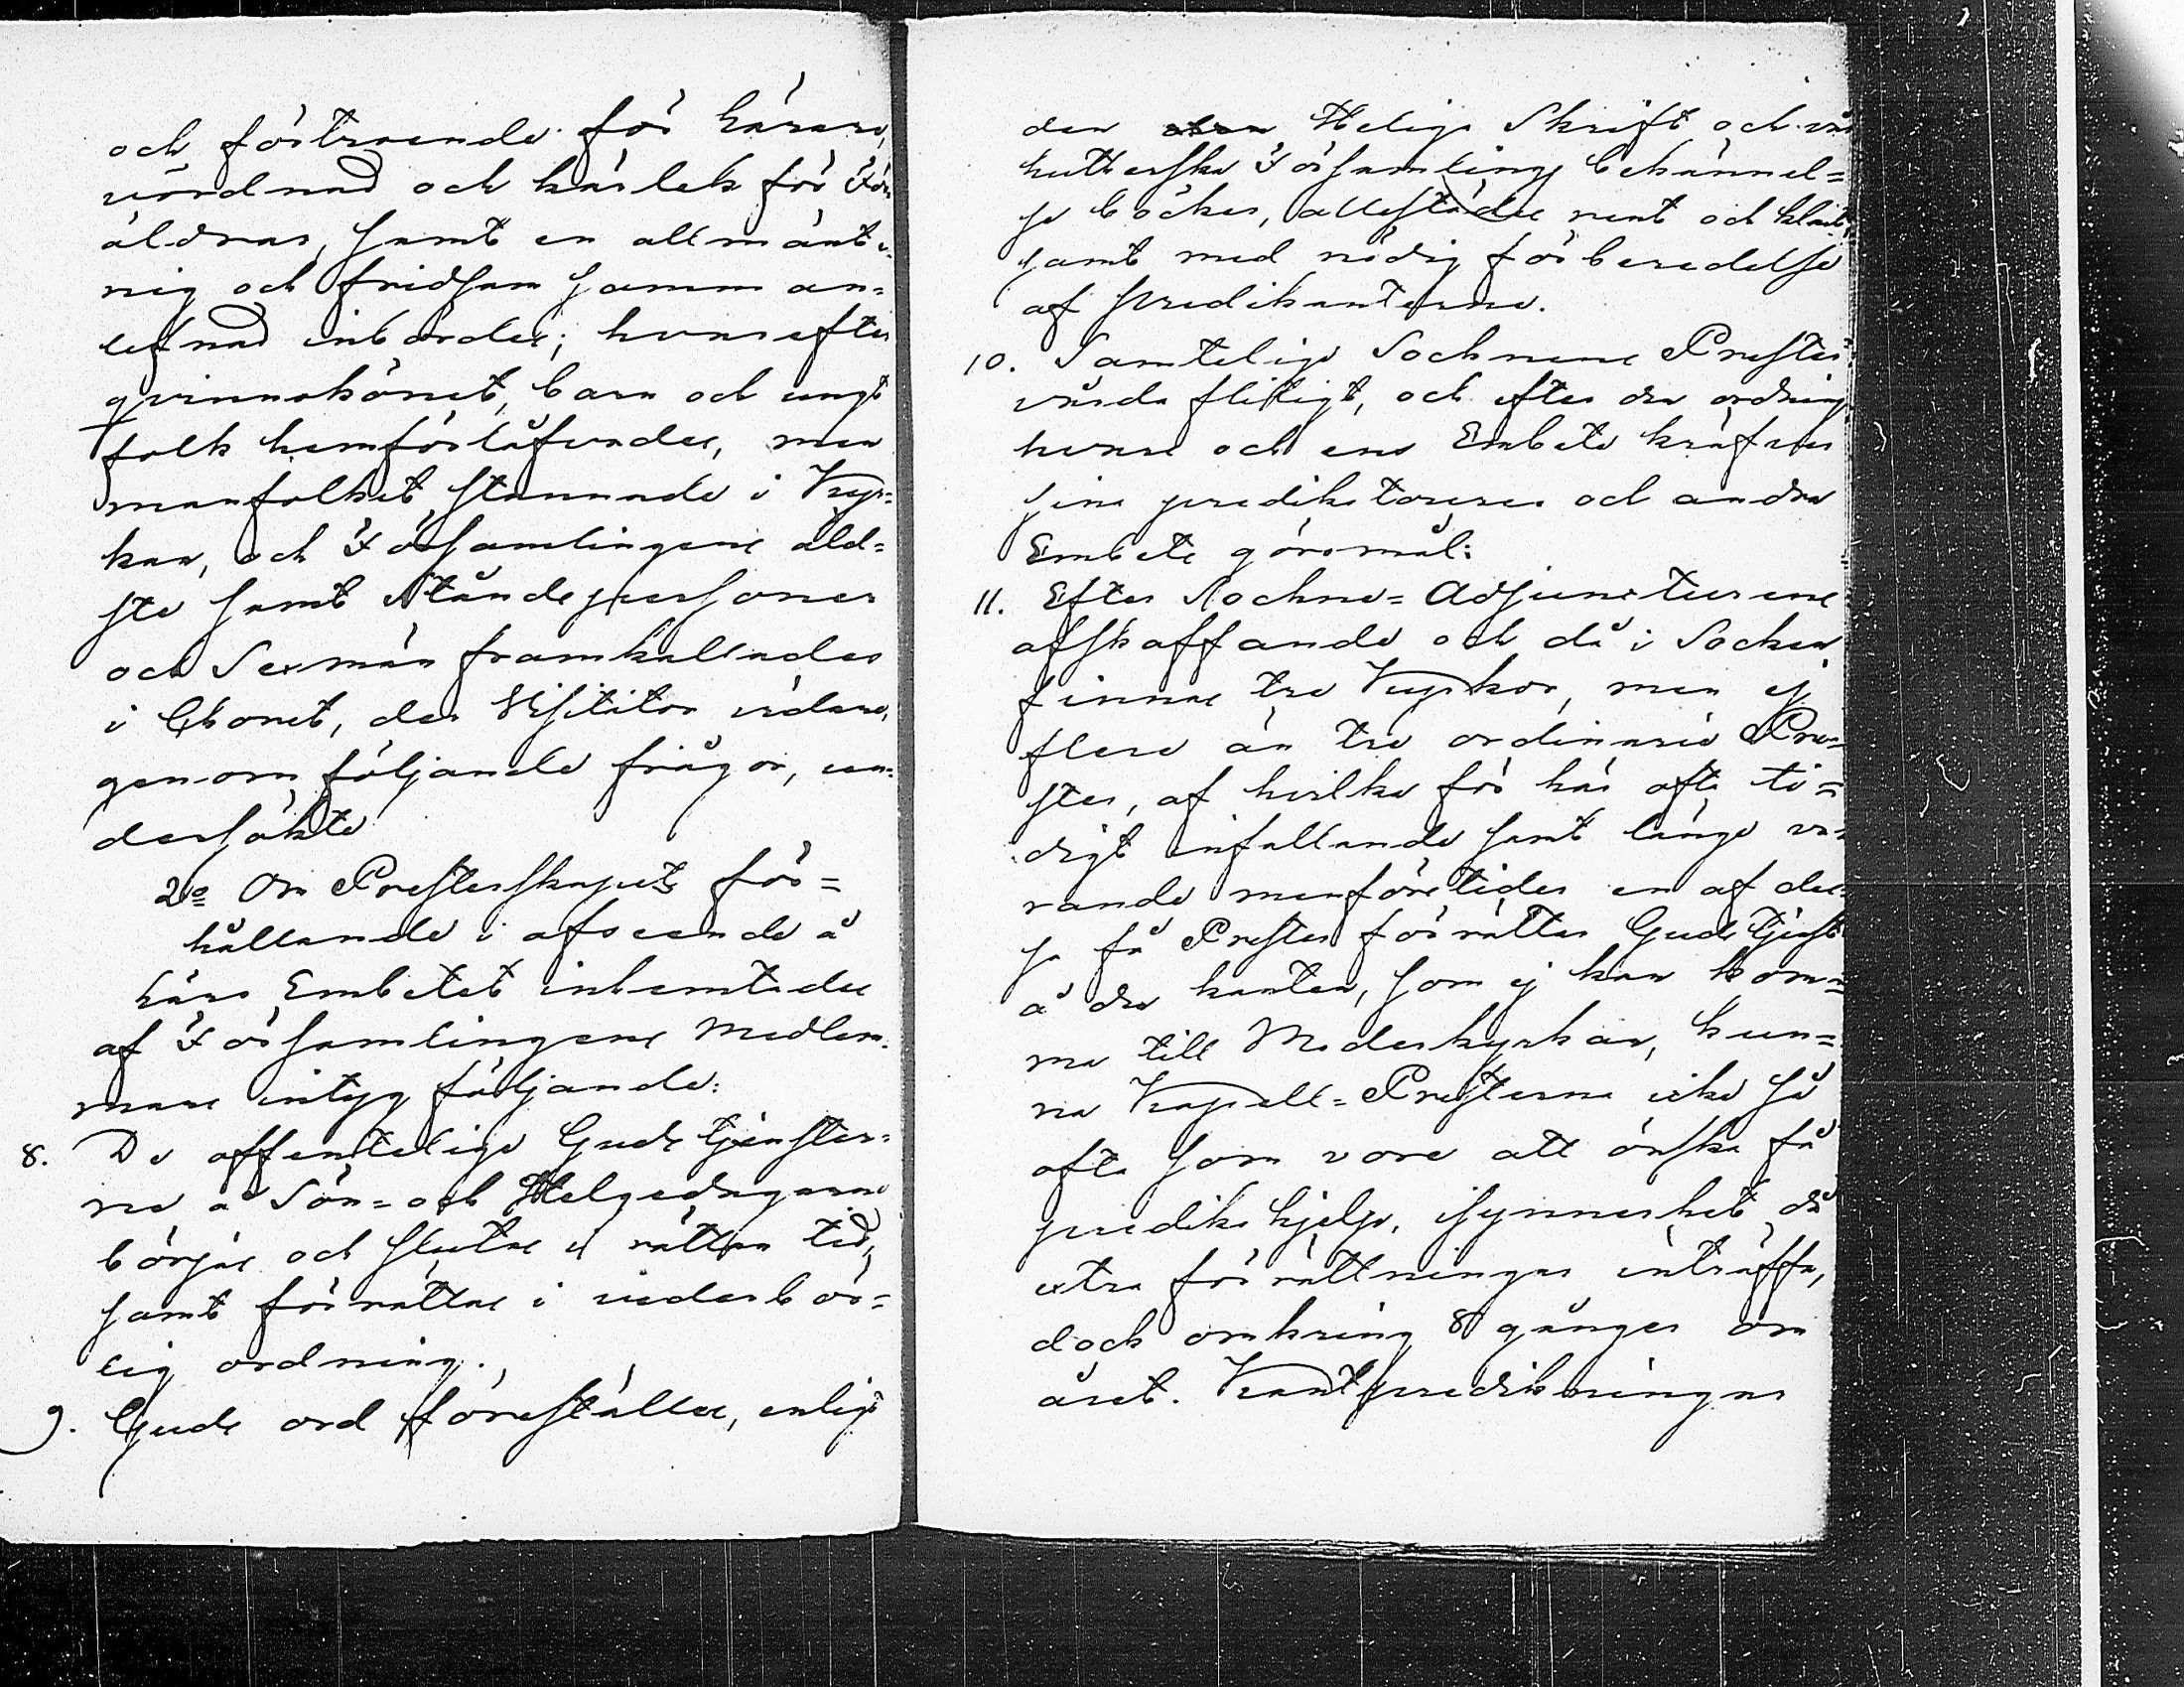 och förtroende för Lärare,
vördnad och kärlek för För
äldrar, samt en allmänt e=
nig och fridsam samman=
lefnad inbördes; hvarefter
qvinnokönet, barn och ungt
folk hemförlåfvades, men
manfolket stannade i Kyr=
kan, och Församlingens äld=
ste samt Ståndspersoner
och Sexmän framkallades
i Choret, der Visitator vidare,
genom följande frågor, un=
dersökte
2:o Om Presterskapets för=
hållande i afseende å
Läro Embetet inhemtades
af Församlingens Medlem=
mars intyg följande:
8. De offentelige Gudstjenster=
na å Sön= och Helgedagarne
börjas och slutas i rättan tid,
samt förrättas i vederbör=
lig ordning.
9. Guds ord föreställes, enligt
den Heliga Skrift och vår
Lutherska Församlings bekännel=
se böcker, allestädes rent och klart,
samt med nödig förberedelse
af Predikanterne.
10. Samtelige Socknens Prester
vårda flitigt, och efter den ordning
hvars och ens Embete kräfver
sina predikoturer och andra
Embets göromål:
11. Efter Sockne=Adjuncturens
afskaffande och då i Socken
finnas tre Kyrkor, men ej
flere än tre ordinarie Pre=
ster, af hvilka för här ofta ti=
digt infallande samt länge va=
rande menföretider en af des=
sa få Prester förrättar Gudstjenst
å den kanten, som ej kan kom=
ma till Moderkyrkan, kun=
na Kapell=Presterna icke så
ofta som vore att önska få
predikohjelp, isynnerhet då
extra förrättningar inträffa,
dock omkring 8 gånger om
året. Kantpredikningar